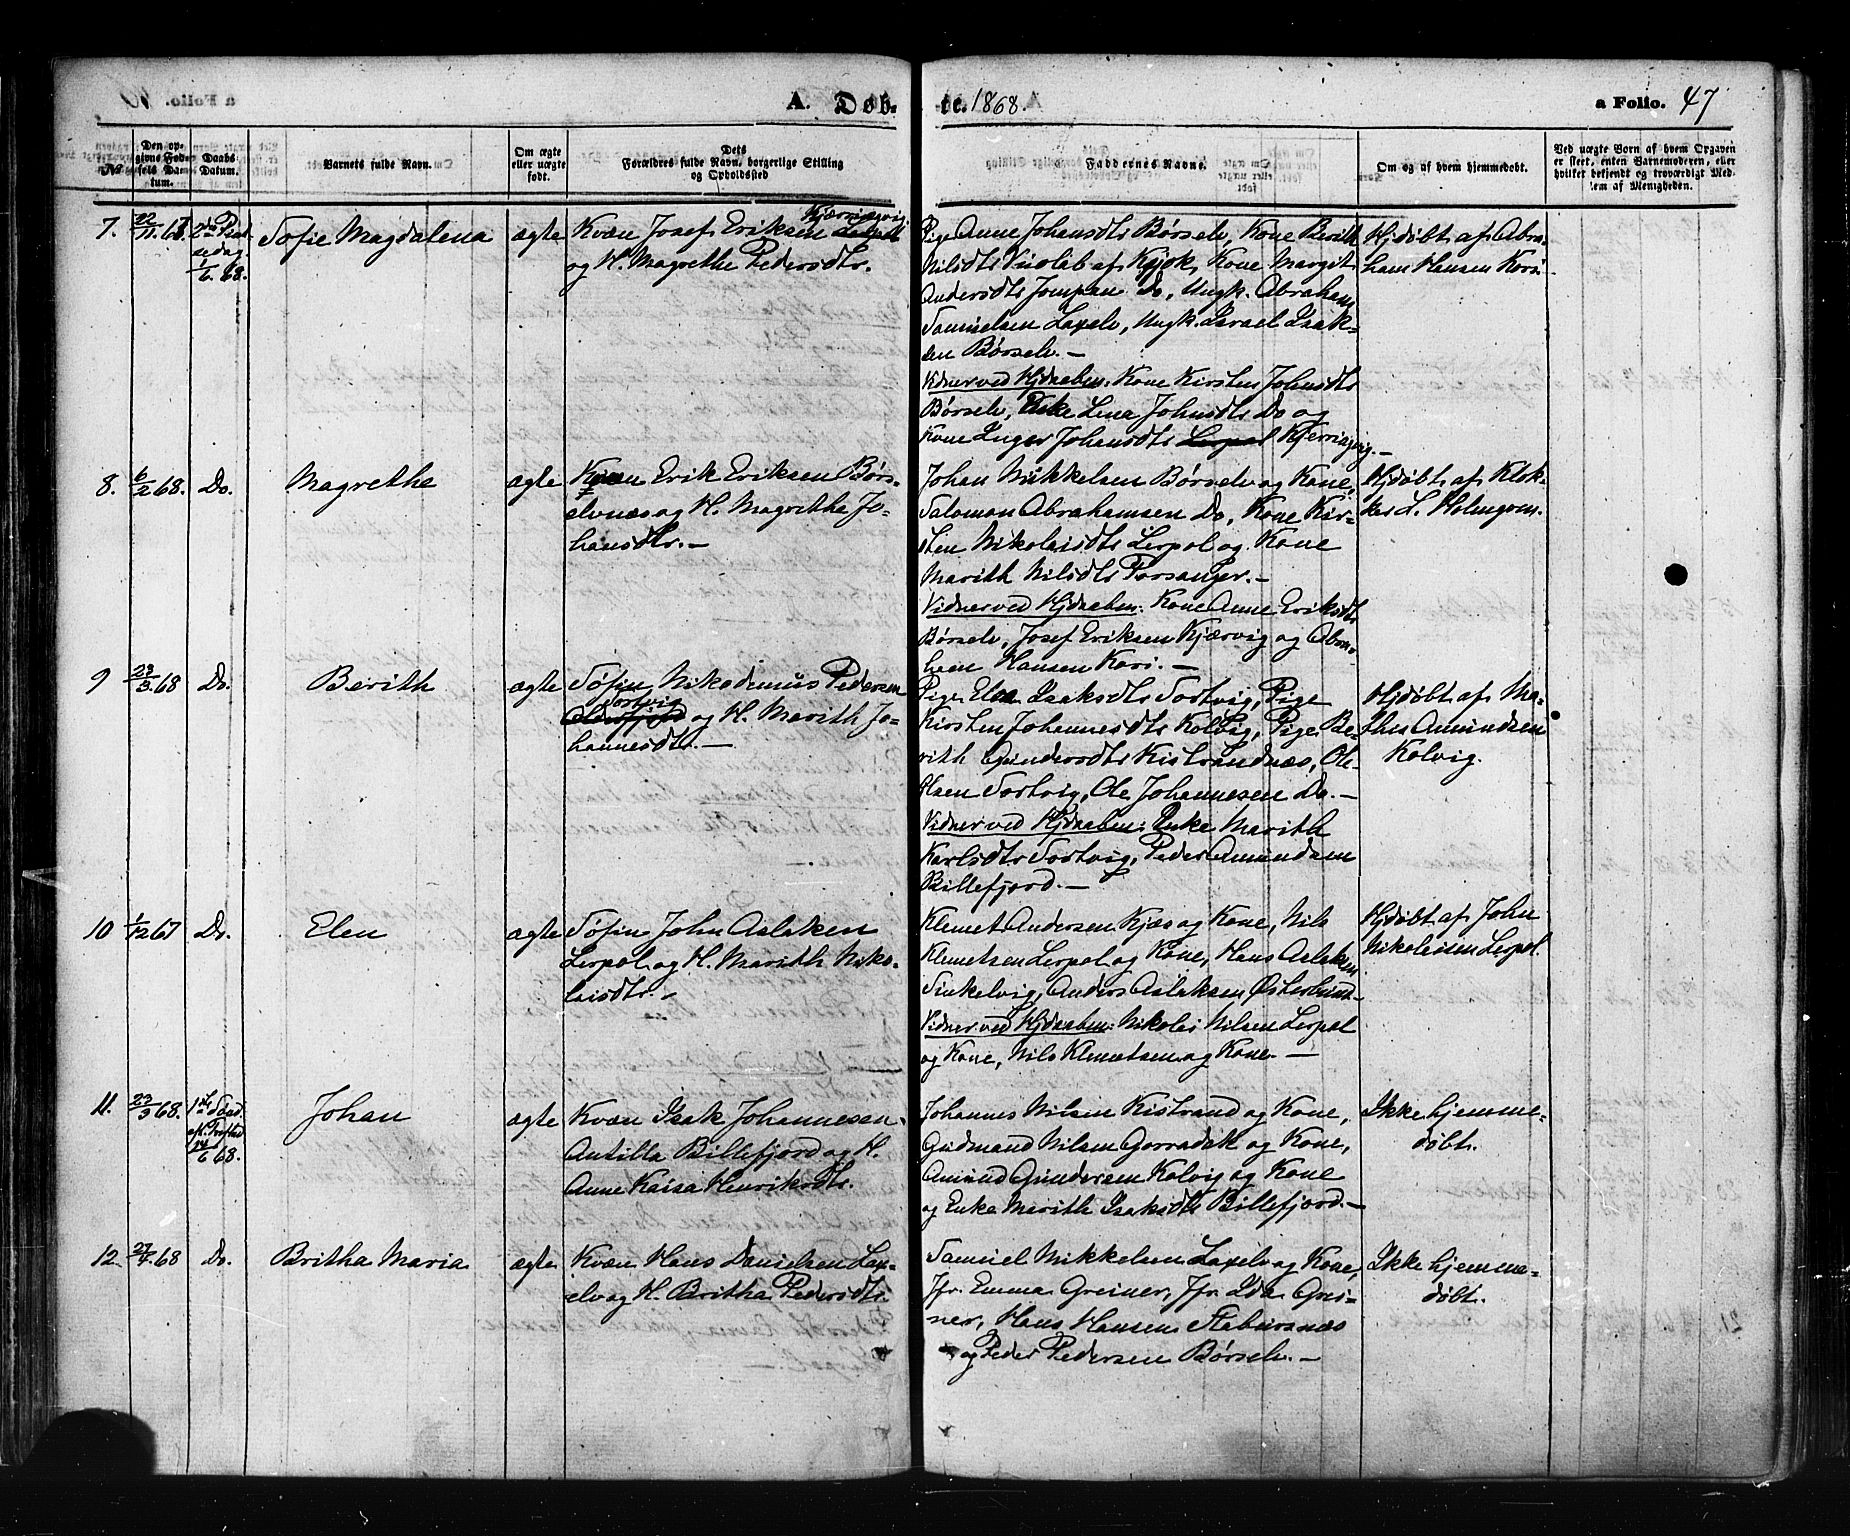 A. Døb- te. 1868. a Folio. 47
No
Den opgivne Fødselsdatum.
Daabs Datum.
Barnets fulde Navn.
Om ægte eller uægte født.
Dets Forældres fulde Navn, borgerlige Stilling og Opholdssted
Faddernes Navne.
Om og af hvem hjemmedøbt.
Ved uægte Børn af hvem Opgaven er skeet, enten Barnemoderen, eller hvilket bekjendt og troværdigt Medlem af Menigheden.
7. 22/11 67. 2den Pintsedag 1/6 68. Sofie Magdalena ægte
Kvæn Josef Eriksen Kjærringvig
og H. Magrethe Pedersdtr.
Pige Anne Johansdtr Børselv, Kone Berith
Nilsdtr Vuolab af Kjøk, Kone Margit
Andersdtr Jompan Do, Ungk. Abraham
Samuelsen Laxelv, Ungk. Israel Isak-
sen Børselv.—
Vidner ved Hjdaaben: Kone Kirsten Johnsdtr
Børselv, Enke Lena Johnsdtr Do og
Kone Inger Johansdtr Lerpol Kjerringvig.—
Hjdøbt af Abra-
ham Hansen Kors.
8. 6/2 68. Do. Magrethe ægte
Kvæn Erik Eriksen Børs-
elvnæs og H. Magrethe Jo-
hansdtr.—
Johan Mikkelsen Børselv og Kone,
Salomon Abrahamsen Do, Kone Kir-
sten Nikolaisdtr Lerpol og Kone
Marith Nilsdtr Porsanger.—
Vidner ved Hjdaaben: Kone Anne Eriksdtr
Børselv, Josef Eriksen Kjærvig og Abra-
ham Hansen Kors.—
Hjdøbt af Klok-
ker L. Holmgren.
9 23/3 68 Do. Berith ægte
Søfin Nikodemus Pedersen
Sortvig
Olderfjord og H. Marith Jo-
hannesdtr.—
Pige Elen Isaksdtr Sortvig, Pige
Kirsten Johannesdtr Kolvig, Pige Be-
rith Gundersdtr Kistrandnæs, Ole
Olsen Sortvig, Ole Johannesen Do.—
Vidner ved Hjdaaben: Enke Marith
Karlsdtr Sortvig, Peder Amundsen
Billefjord.—
Hjdøbt af Ma-
thes Amundsen
Kolvig.
10 1/12 67 Do. Elen ægte
Søfin John Aslaksen
Lerpol og H. Marith Niko-
laisdtr.—
Klemet Andersen Kjæs og Kone, Nils
Klemetsen Lerpol og Kone, Hans Aslaksen
Smkelvig, Anders Aslaksen Østerbund.—
Vidner ved Hjdaaben: Nikolai Nilsen Lerpol
og Kone, Nils Klemetsen og Kone.—
Hjdøbt af John
Nikolaisen Lerpol.
11. 23/3 68. 1ste Sønd. eft. Trefted 14/6 68. Johan ægte
Kvæn Isak Johannesen
Antilla Billefjord og H.
Anne Kaisa Henriksdtr.
Johannes Nilsen Kistrand og Kone,
Gudmund Nilsen Gorradak og Kone,
Amund Gundersen Kolvig og Kone
og Enke Marith Isaksdtr Billefjord.—
Ikke hjemme-
døbt.
12. 27/4 68 Do. Britha Maria ægte
Kvæn Hans Danielsen Lax-
elv og H. Britha Pedersdtr.
Samuel Mikkelsen Laxelv og Kone,
Jfr. Emma Greiner, Jfr. Ida Grei-
ner, Hans Hansen Stabursnæs
og Peder Pedersen Børselv.—
Ikke hjemme-
døbt.